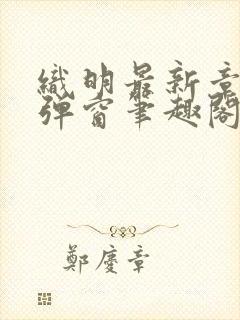 織明最新章
彈窗筆趣閣
鄭慶章